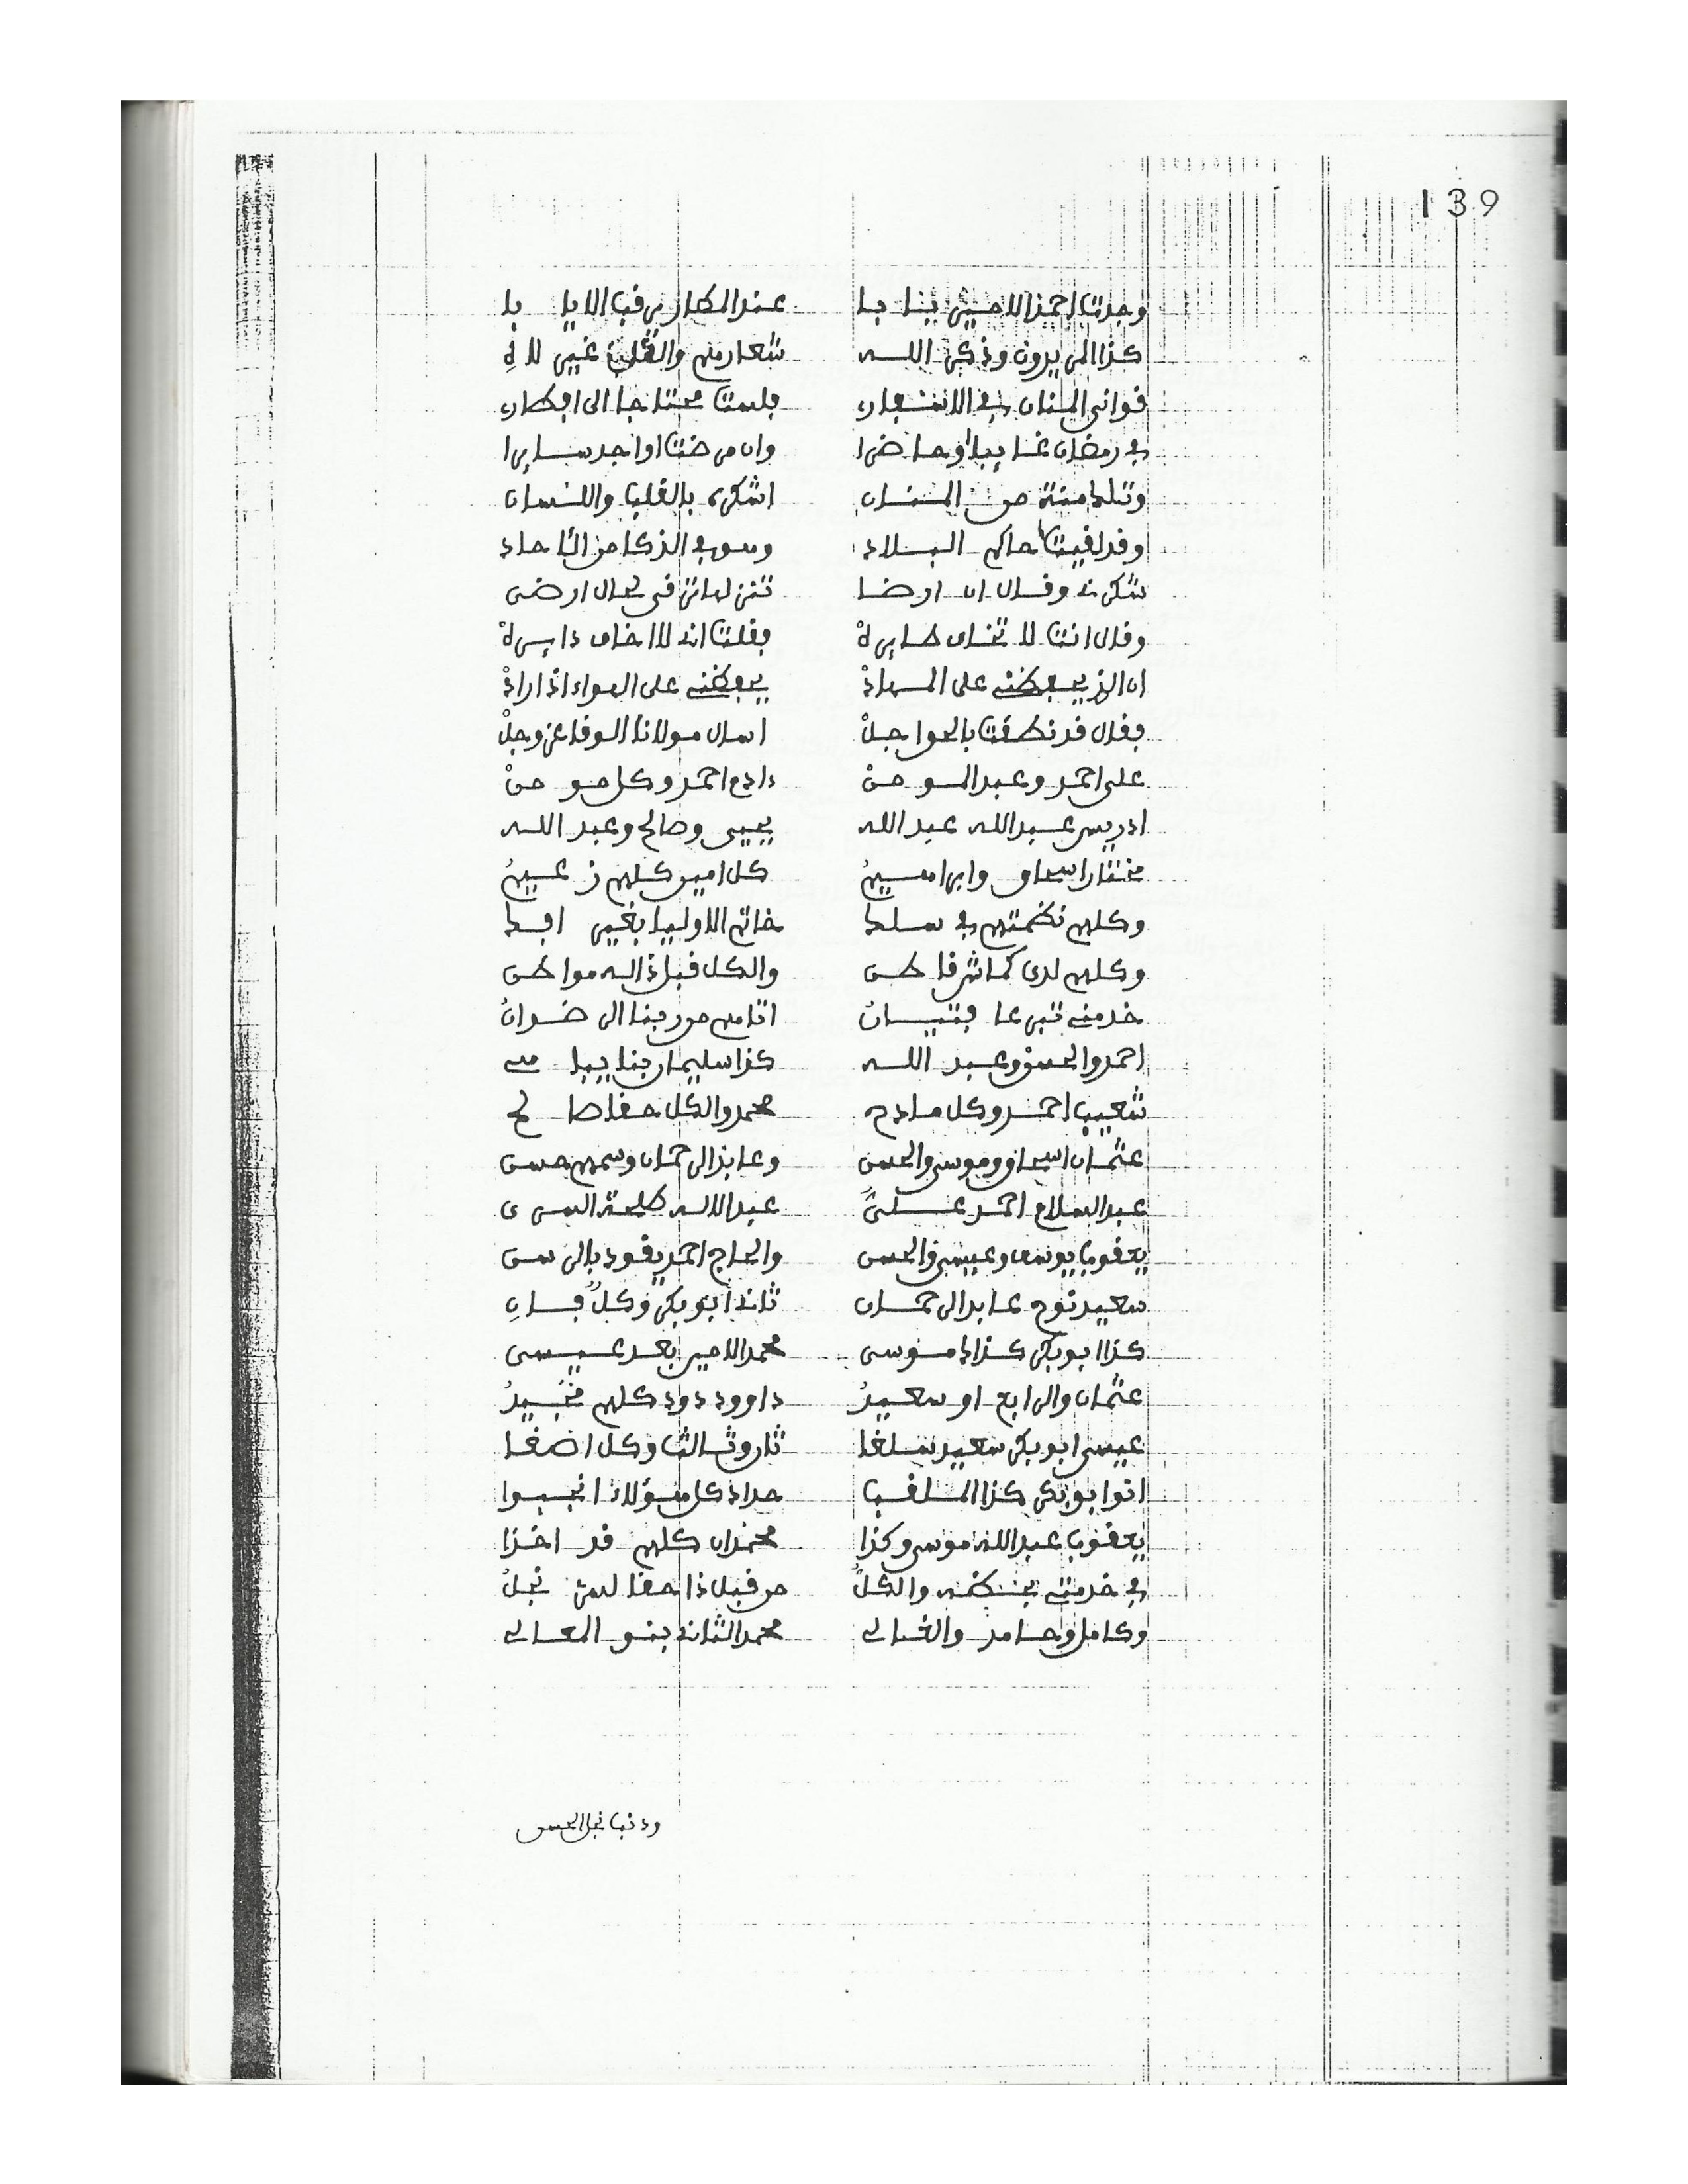 139
وجدت احمد الامين بنابا عند المطار يرقب الايابا
كذا المريدون وذكر الله شعارهم والقلب غير لاه
فواني المنان في الاسفار فلست محتاجا الى افطار
في رمضان غايبا او حاضرا وان مرضت او اجد سايرا
وتلك منة من المنان اشكره بالقلب واللسان
وقد لقيت حاكم البلاد وهو في الذكا من الئاحاد
شكرته وقال ان ارضا تنزلها ترقى بحال ارضى
وقال انت لا تخاف طايره فقلت انه لا اخاف دايره
ان الذي يحفظني على المهاد يحفظني على الهواء اذا اراد
فقال قد نطقت بالحوا جل اسال مولانا الوفا عز وجل
على احمد وعبد المومن دادع احمد وكل مومن
ادريس عبد الله عبد الله يحيى وصالح وعبد الله
مختار اسحاق وابراهيم كل امين كلهم زعيم
وكلهم نظمتهم في سلك خاتم الاوليا بغير افك
وكلهم لدى كماشر قاطن والكل قبل ذا له مواطن
خدمني تبرعا فتيان اتاهم من ربنا الرضوان
احمد والحسن وعبد الله كذا سليمان بنا يباهي
شعيب احمد وكل مادح محمد والكل حقا صالح
عثمان اسحاق وموسى والحسن وعابد الرحمان وسمهم حسن
عبد السلام احمد علي عبد الاله طلحة السري
يعقوب يوسف وعيسى والحسن والحاج احمد يقود بالرسن
سعيد نوح عابد الرحمان ثاني ابو بكر وكل فان
كذا ابو بكر كذاك موسى محمد الامير بعد عيسى
عثمان والرابع او سعيد داوود دود كلهم مجيد
عيسى ابو بكر سعيد سلفا ثان وثالث وكل اضعفا
اتوا بو بكر كذا الملقب حداد كل هؤلاء انجبوا
يعقوب عبد الله موسى وكذا محمدان كلهم قد اخذا
في خدمتي بحظه والكل من قبل ذا حقا لديه نجل
وكامل وحامد والغالي محمد الثاني بنو المعالي
ودنب نجل الحسن